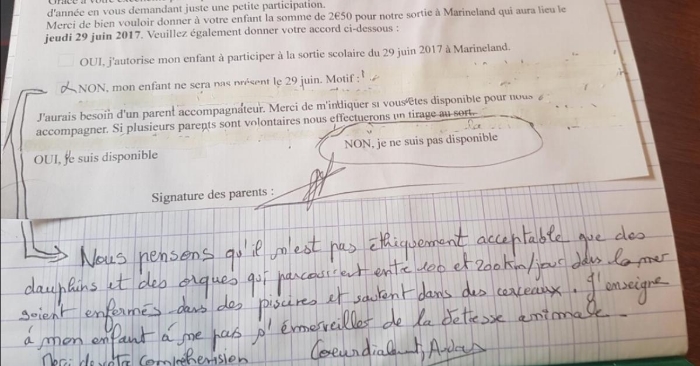 d'année en vous demandant juste une petite participation.
Merci de bien vouloir donner à votre enfant la somme de 2€50 pour notre sortie à Marineland qui aura lieu le
jeudi 29 juin 2017. Veuillez également donner votre accord ci-dessous :
OUI, j'autorise mon enfant à participer à la sortie scolaire du 29 juin 2017 à Marineland.
NON, mon enfant ne sera pas présent le 29 juin. Motif :
J'aurais besoin d'un parent accompagnateur. Merci de m'indiquer si vous êtes disponible pour nous
accompagner. Si plusieurs parents sont volontaires nous effectuerons un tirage au sort.
OUI, je suis disponible
NON, je ne suis pas disponible
Signature des parents :
Nous pensons qu'il n'est pas éthiquement acceptable que des
dauphins et des orques qui parcourent entre 100 et 200 km/jour dans la mer
soient enfermés dans des piscines et sautent dans des cerceaux. J'enseigne
à mon enfant à ne pas s'émerveiller de la détresse animale.
Merci de votre compréhension